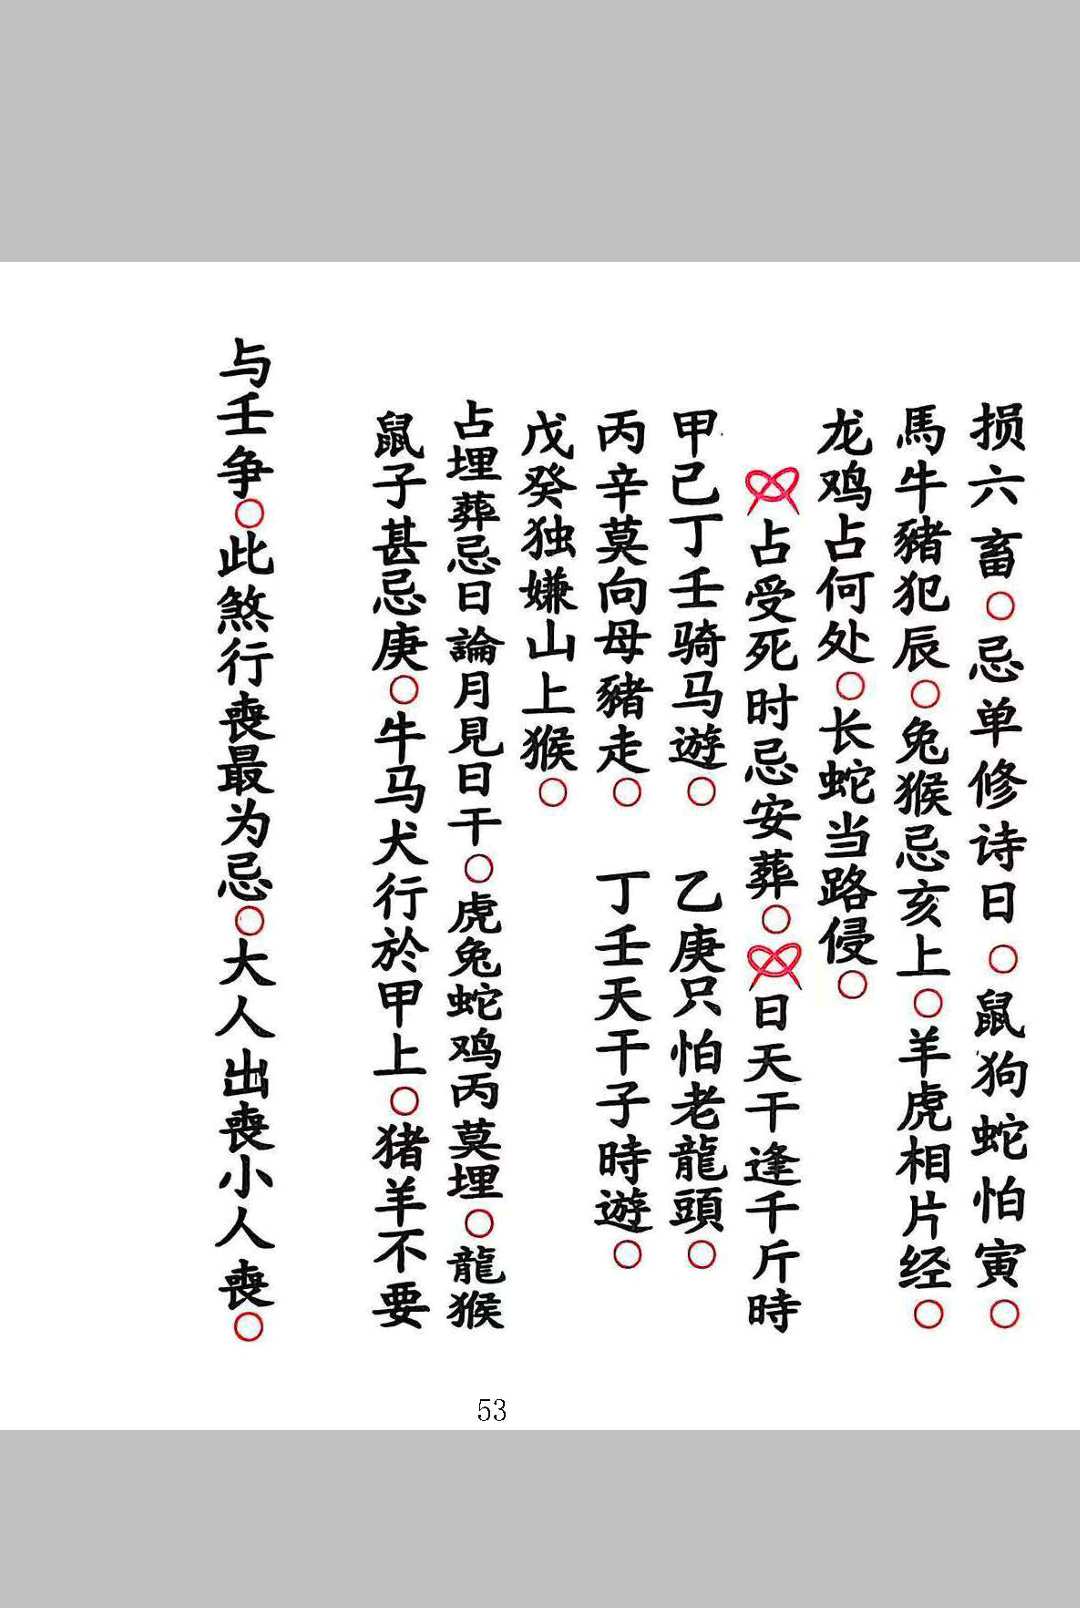 损六畜○忌单修诗日○鼠狗蛇怕寅○
馬牛豬犯辰○兔猴忌亥上○羊虎相片经○
龙鸡占何处○长蛇当路侵○
占受死时忌安葬○日天干逢千斤時
甲己丁壬骑马遊○ 乙庚只怕老龍頭○
丙辛莫向母豬走○ 丁壬天干子時遊○
戊癸独嫌山上猴○
占埋葬忌日論月見日干○虎兔蛇鸡丙莫埋○龍猴
鼠子甚忌庚○牛马犬行於甲上○猪羊不要
与壬争○此煞行喪最为忌○大人出喪小人喪○
53